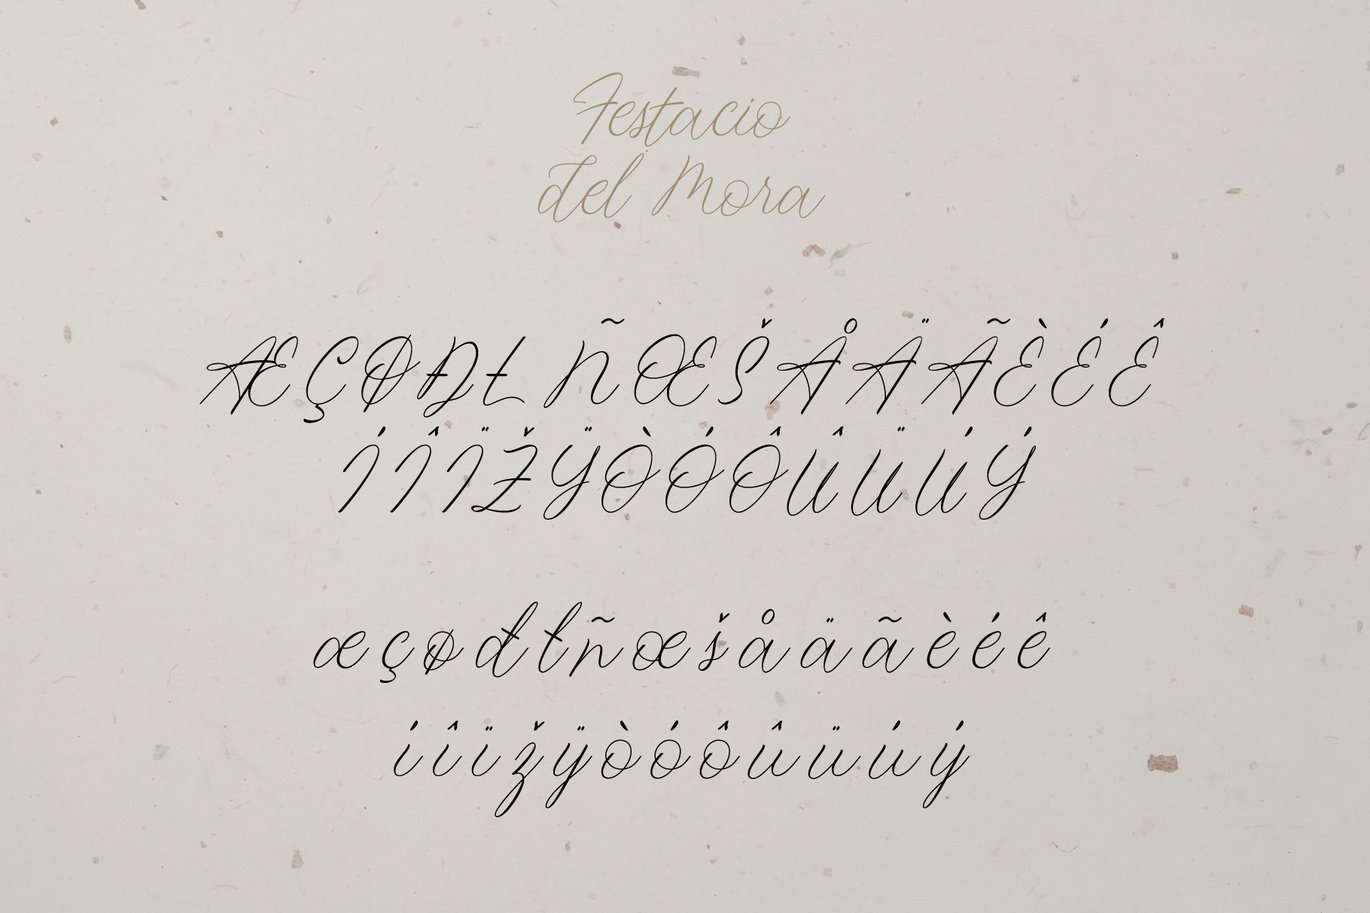 Festacio
del Mora
ÆÇØĐŁÑŒŠÅÄÃÈÉÊ
ÍÎÏŽŸÒÓÔÛÜÚÝ
æçøđłñœšåäãèéê
íîïžÿòóôûüúý